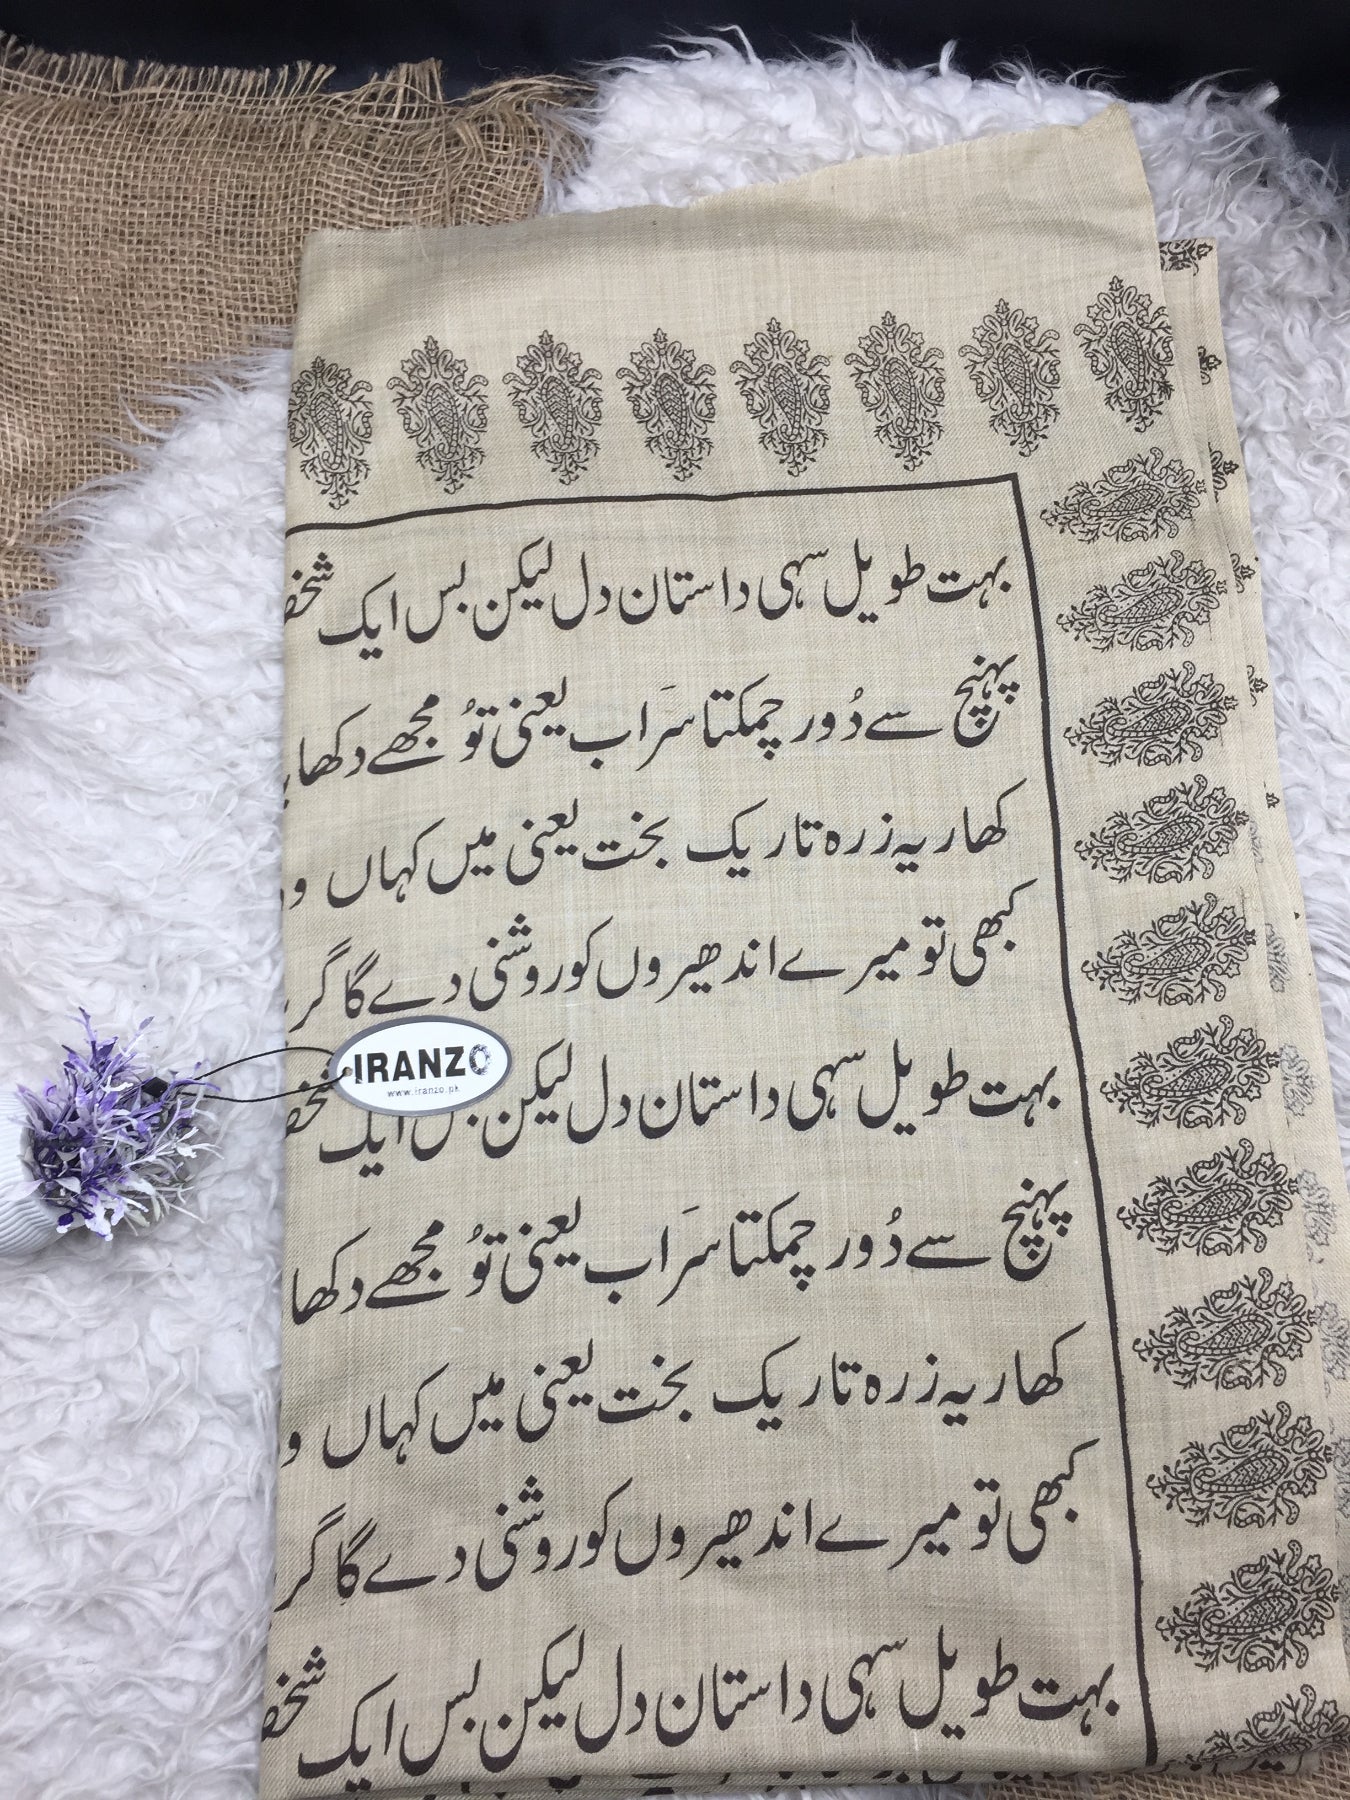 بہت طویل سہی داستان دل لیکن بس ایک
پہنچ سے دُور چمکتا سَراب یعنی تُو مجھے دکھا
کھار یہ زرہ تاریک بخت یعنی میں کہاں
کبھی تو میرے اندھیروں کو روشنی دے گا گر
IRANZO
www.iranzo.pk
بہت طویل سہی داستان دل لیکن بس ایک
پہنچ سے دُور چمکتا سَراب یعنی تُو مجھے دکھا
کھار یہ زرہ تاریک بخت یعنی میں کہاں
کبھی تو میرے اندھیروں کو روشنی دے گا گر
بہت طویل سہی داستان دل لیکن بس ایک